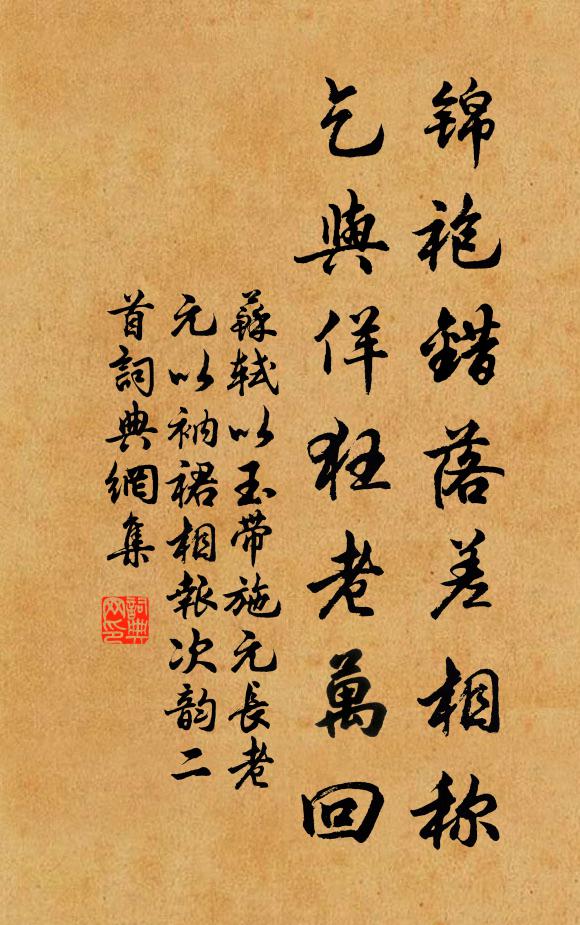 锦袍錯落差相称
乞與佯狂老萬回
蘇軾以玉帶施元長老
元以衲裙相報次韵二
首詞典網集
詞典网印